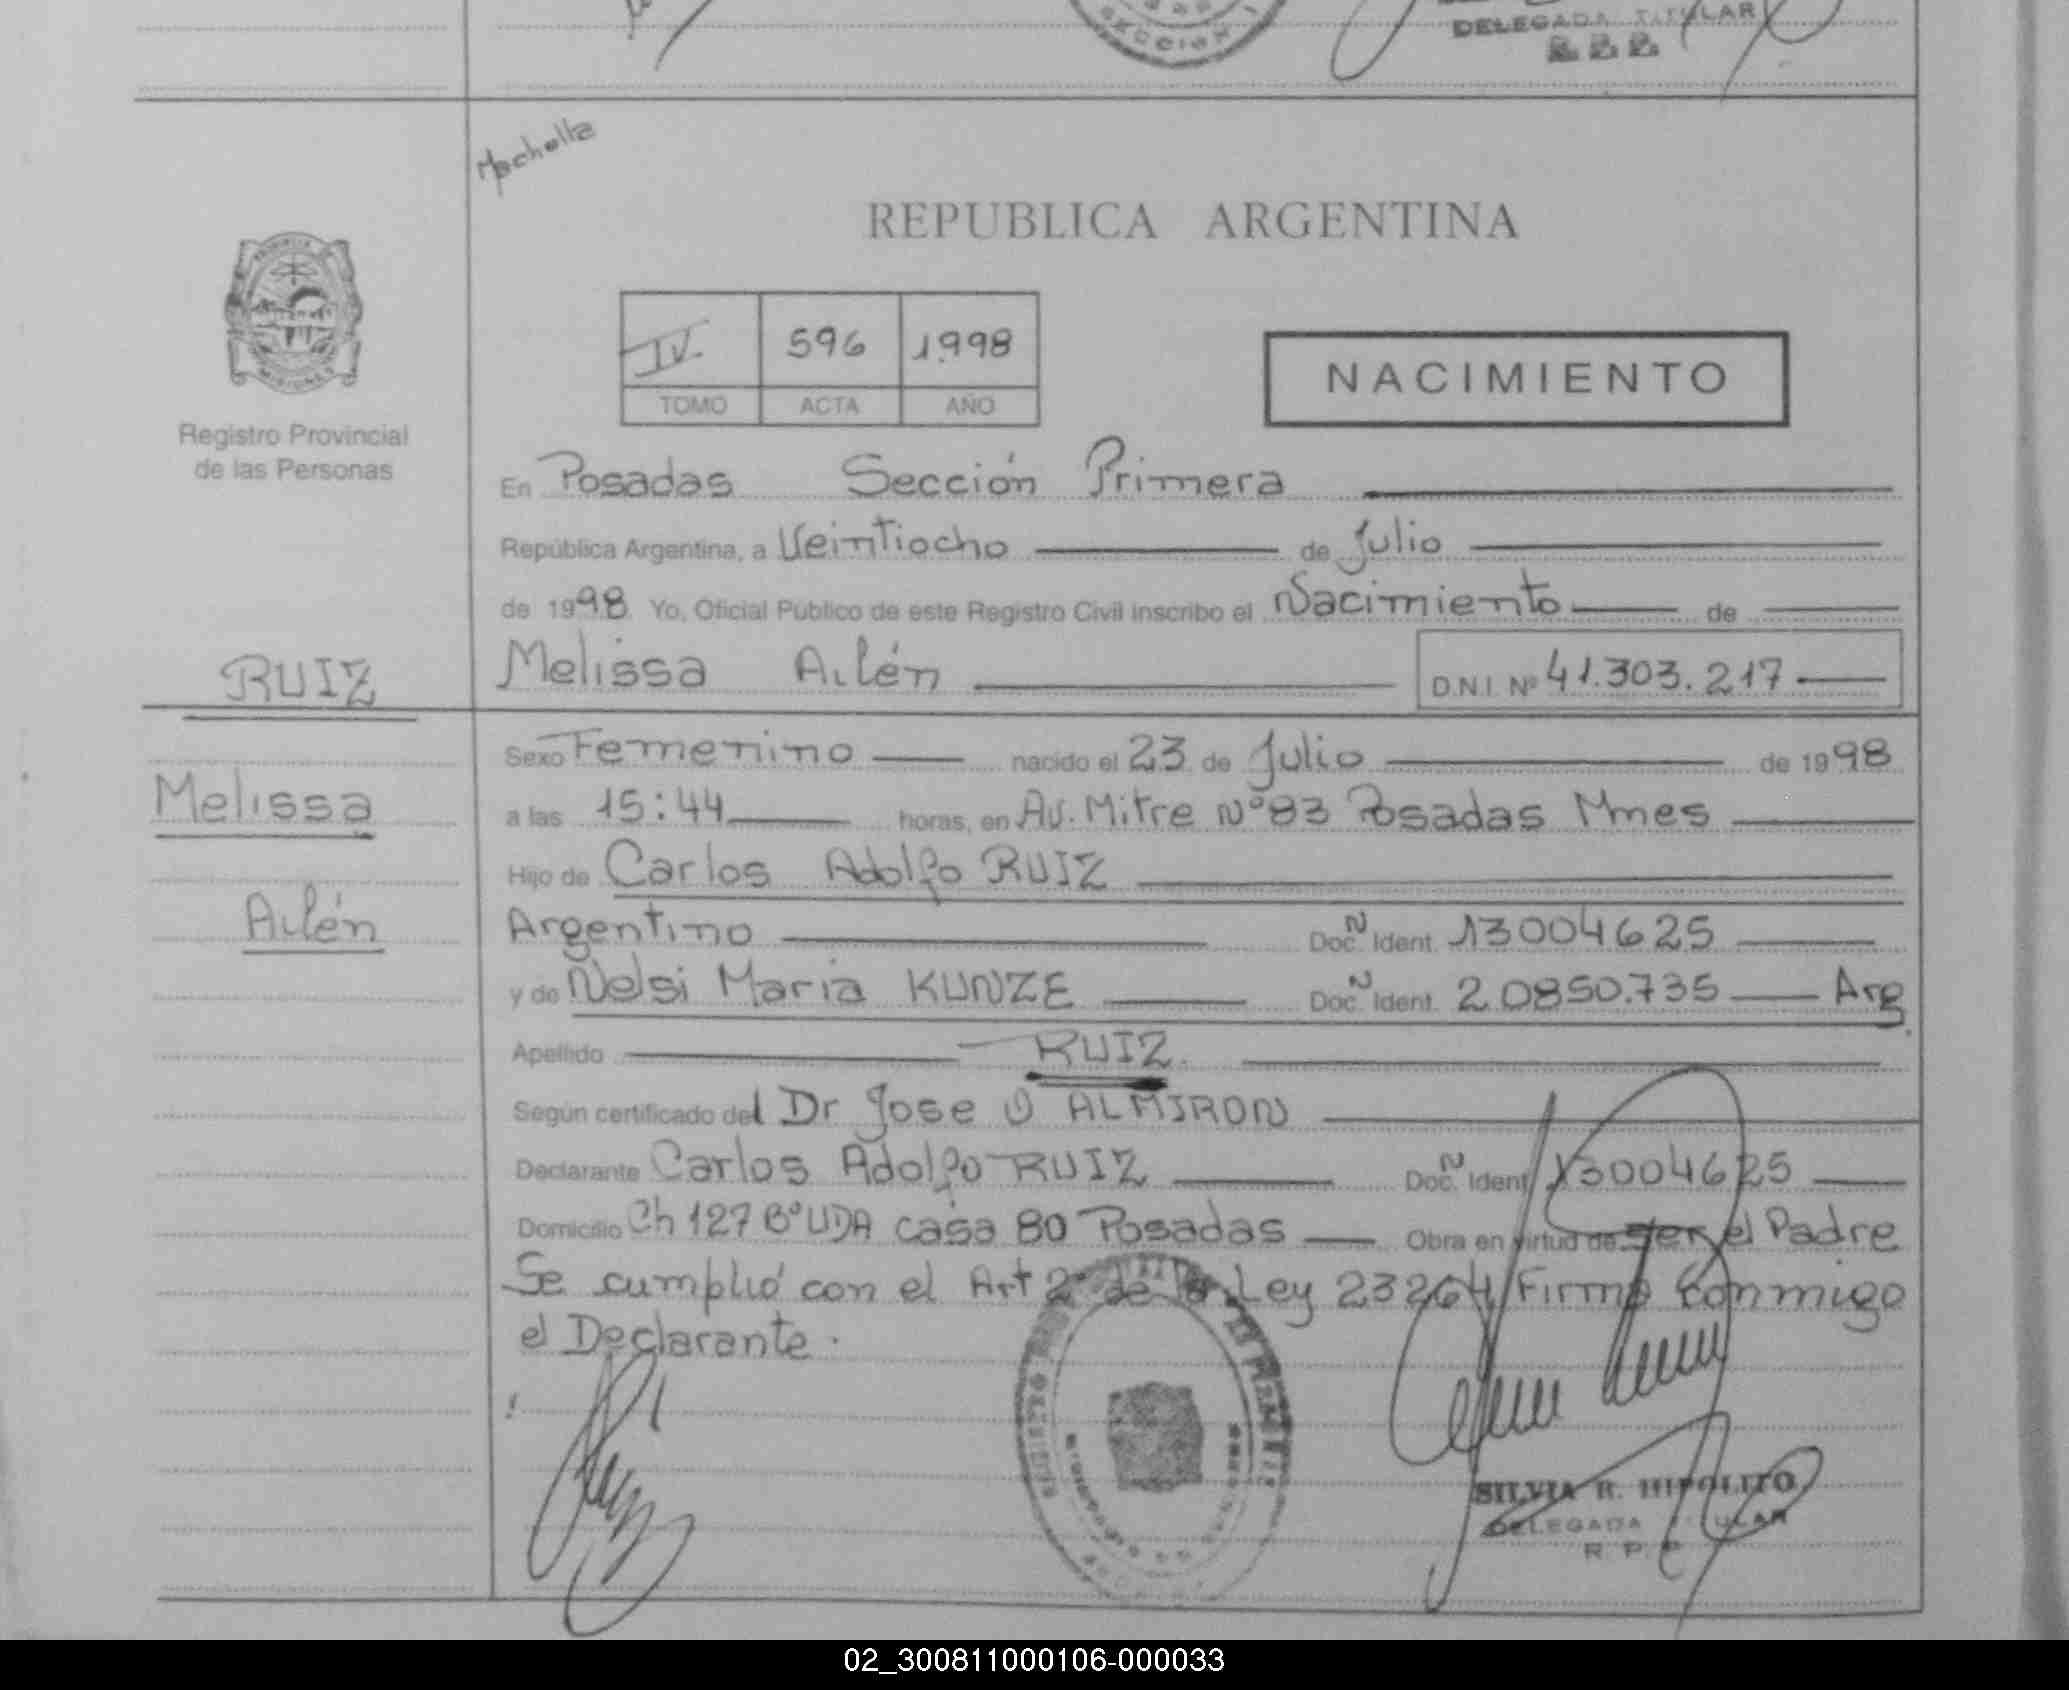 SECCION 1
DELEGADA TITULAR
Machella
REPUBLICA ARGENTINA
PROVINCIA
MISIONES
IV. 596 1.998
TOMO ACTA AÑO
NACIMIENTO
Registro Provincial
de las Personas
En Posadas Sección Primera
República Argentina, a Veintiocho de Julio
de 1998 Yo, Oficial Público de este Registro Civil inscribo el Nacimiento de
RUIZ
Melissa Ailén D.N.I. Nº 41.303.217
Sexo Femenino nacido el 23 de Julio de 1998
Melissa
a las 15:44 horas, en Av. Mitre Nº 83 Posadas Mnes
Hijo de Carlos Adolfo RUIZ
Ailén
Argentino Doc. N Ident. 13004625
y de Nelsi Maria KUNZE Doc. N Ident. 20850.735 Arg
Apellido RUIZ
Según certificado del Dr Jose O ALMIRON
Declarante Carlos Adolfo RUIZ Doc. N Ident. 13004625
Domicilio Ch 127 Bº UDA casa 80 Posadas Obra en virtud de ser el Padre
Se cumplió con el Art 2º de la Ley 23264 Firma conmigo
el Declarante.
SILVIA R. HIPOLITO
DELEGADA TITULAR
R. P. P.
02_300811000106-000033